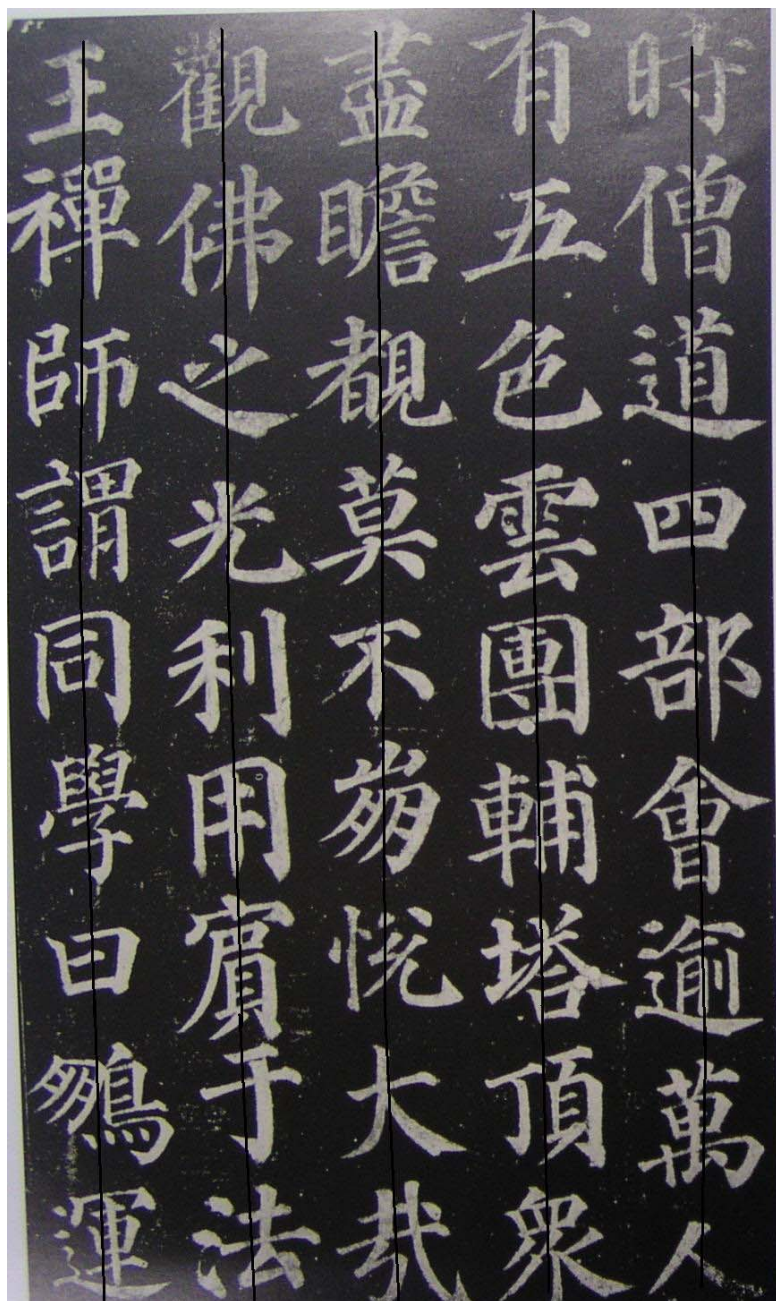 時僧道四部會逾萬人
有五色雲團輔塔頂眾
盡瞻覩莫不崩悅大哉
觀佛之光利用賓于法
王禪師謂同學曰鵬運